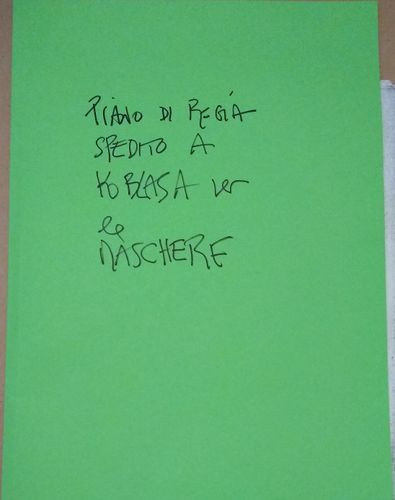 PIANO DI REGIA
SPEDITO A
KOBLASA per
le
MASCHERE